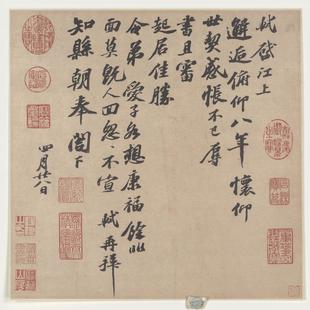 軾啓江上
邂逅俯仰八年懷仰
世契感悵不已辱
書且審
起居佳勝
令弟愛子各想康福餘非
面莫既人回忽忽不宣軾再拜
知縣朝奉閣下
四月廿八日